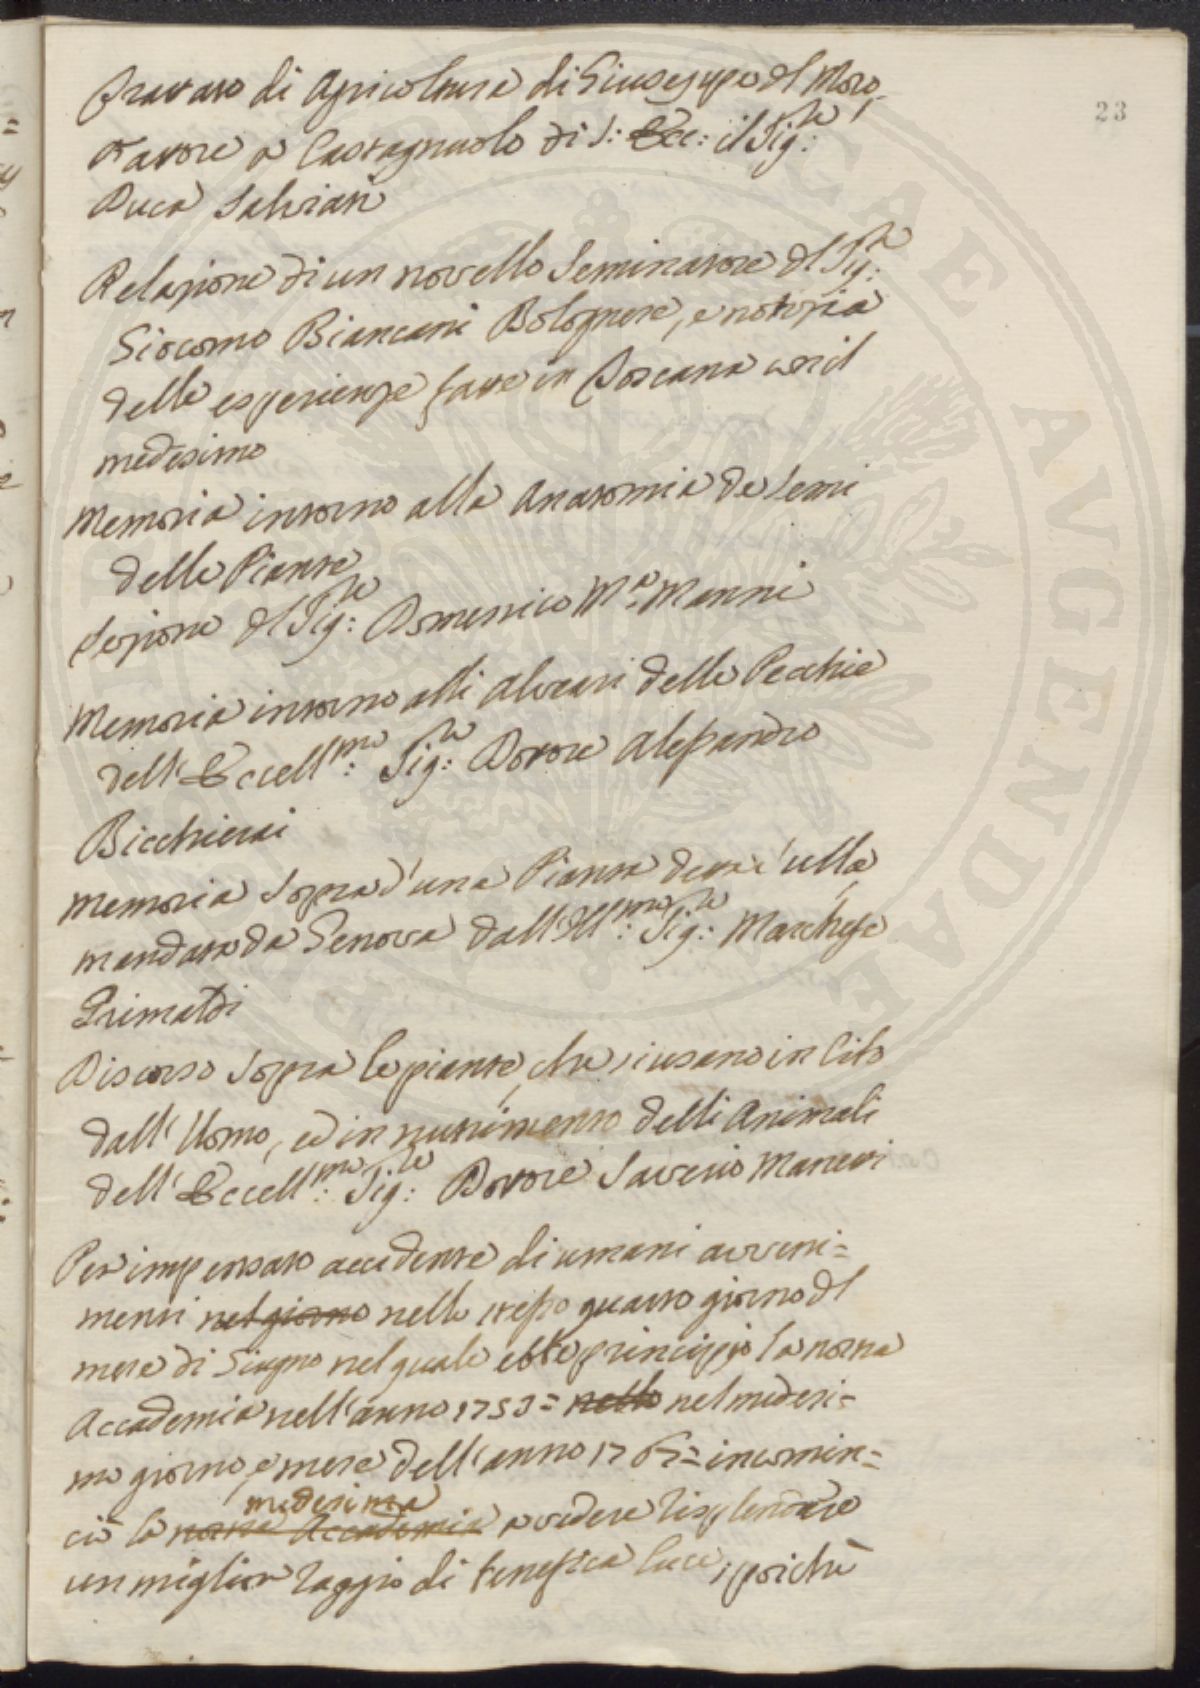 23
Trattato di Agricoltura di Giuseppe del Moro,
Fattore a Castagnuolo di S: Ecc: il Sig:re
Duca Salviati
Relazione di un novello Seminatore del Sig:re
Giocomo Biancani Bolognese, e notizia
delle esperienze fatte in Toscana con il
medesimo
Memoria intorno alla Anatomia de Semi
delle Piante
Lezione del Sig:re Domenico M:a Manni
Memoria intorno alli Alveari delle Pecchie
dell'Eccell:mo Sig:re Dottore Alessandro
Bicchierai
Memoria sopra d'una Pianta detta Sulla
mandata da Genova dall'Ill:mo Sig:re Marchese
Grimaldi
Discorso sopra le piante, che si usano in Cibo
dall'Uomo, ed in nutrimento delli Animali
dell'Eccell:mo Sig:re Dottore Saverio Manetti
Per impensato accidente di umani avveni=
menti nel giorno nello stesso quarto giorno del
mese di Giugno nel quale ebbe principio la nostra
Accademia nell'anno 1753= nello nel medesi=
mo giorno, e mese dell'anno 1767= incomin=
ciò la nostra Accademia medesima a vedere risplendere
un miglior raggio di benefica luce, poichè
PVBLICAE AVGENDAE